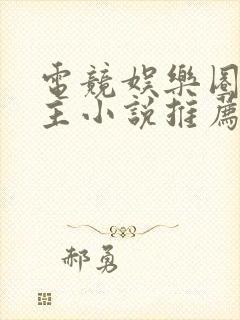 電競娛樂圈
主小說推薦
郝勇